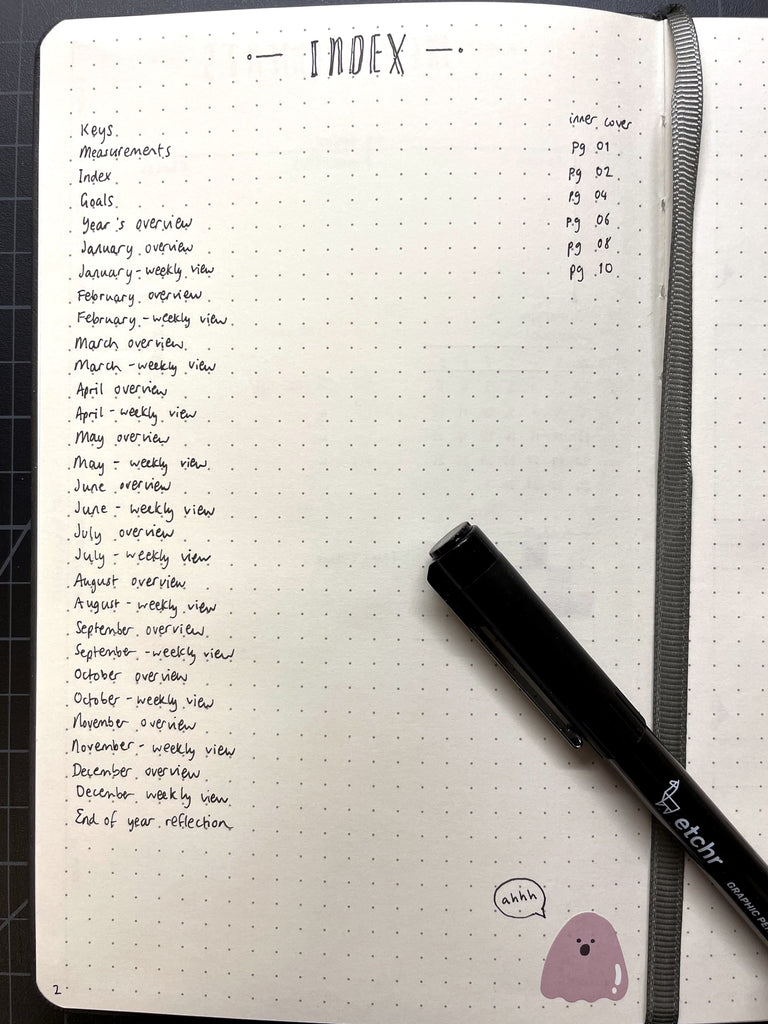 ·— INDEX —·
Keys inner cover
Measurements pg 01
Index pg 02
Goals pg 04
Year's overview pg 06
January overview pg 08
January - weekly view pg 10
February overview
February - weekly view
March overview
March - weekly view
April overview
April - weekly view
May overview
May - weekly view
June overview
June - weekly view
July overview
July - weekly view
August overview
August - weekly view
September overview
September - weekly view
October overview
October - weekly view
November overview
November - weekly view
December overview
December weekly view
End of year reflection
etchr
GRAPHIC PE
ahhh
2